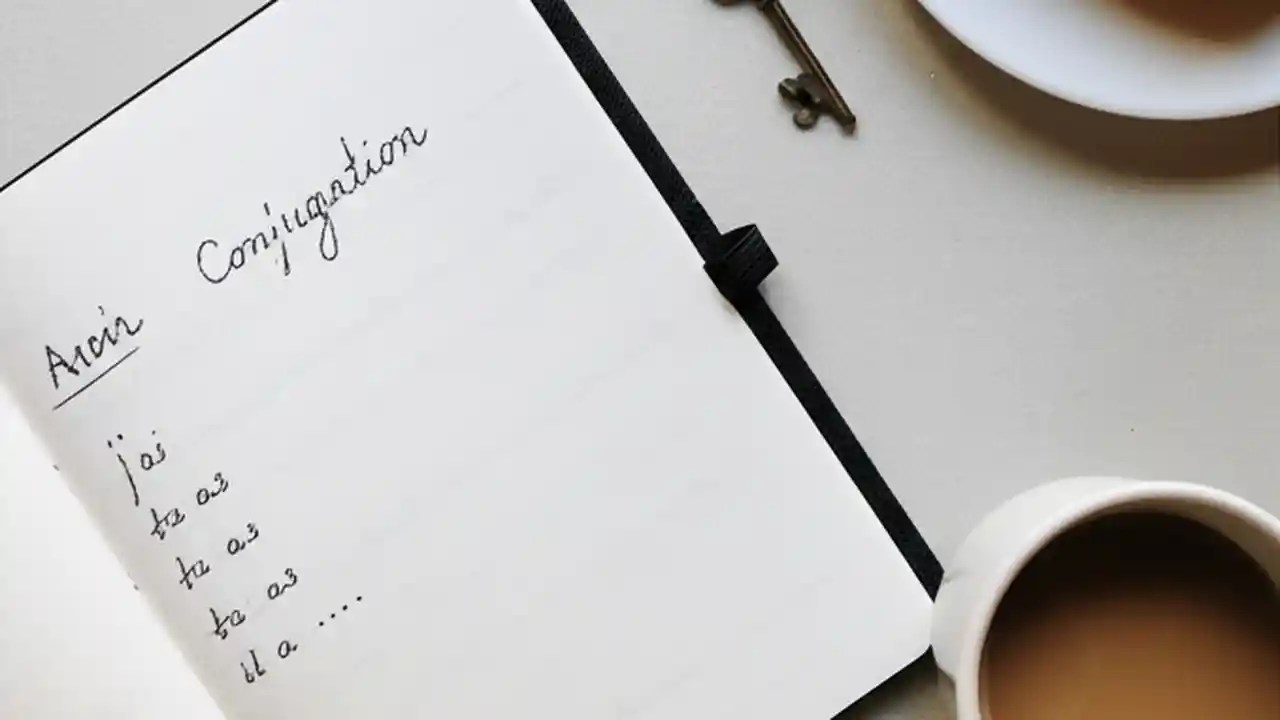 Conjugation
Avoir
j'ai
tu as
tu as
tu as
il a ....